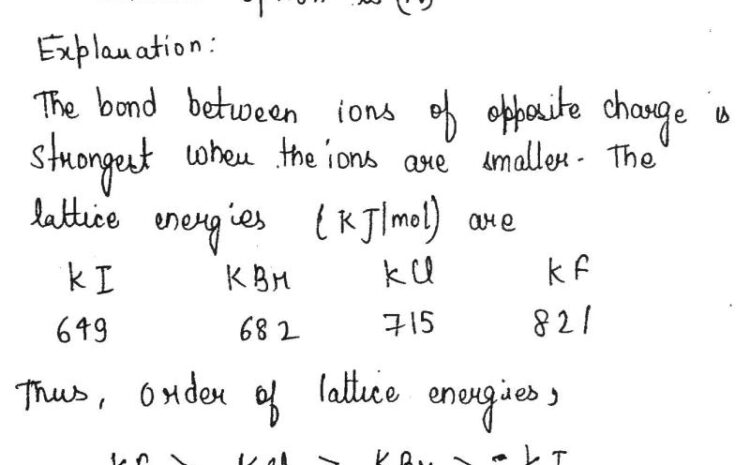 option is (A)
Explanation:
The bond between ions of opposite charge is
strongest when the ions are smaller. The
lattice energies (KJ/mol) are
KI KBr KCl KF
649 682 715 821
Thus, order of lattice energies,
KF > KCl > KBr > KI